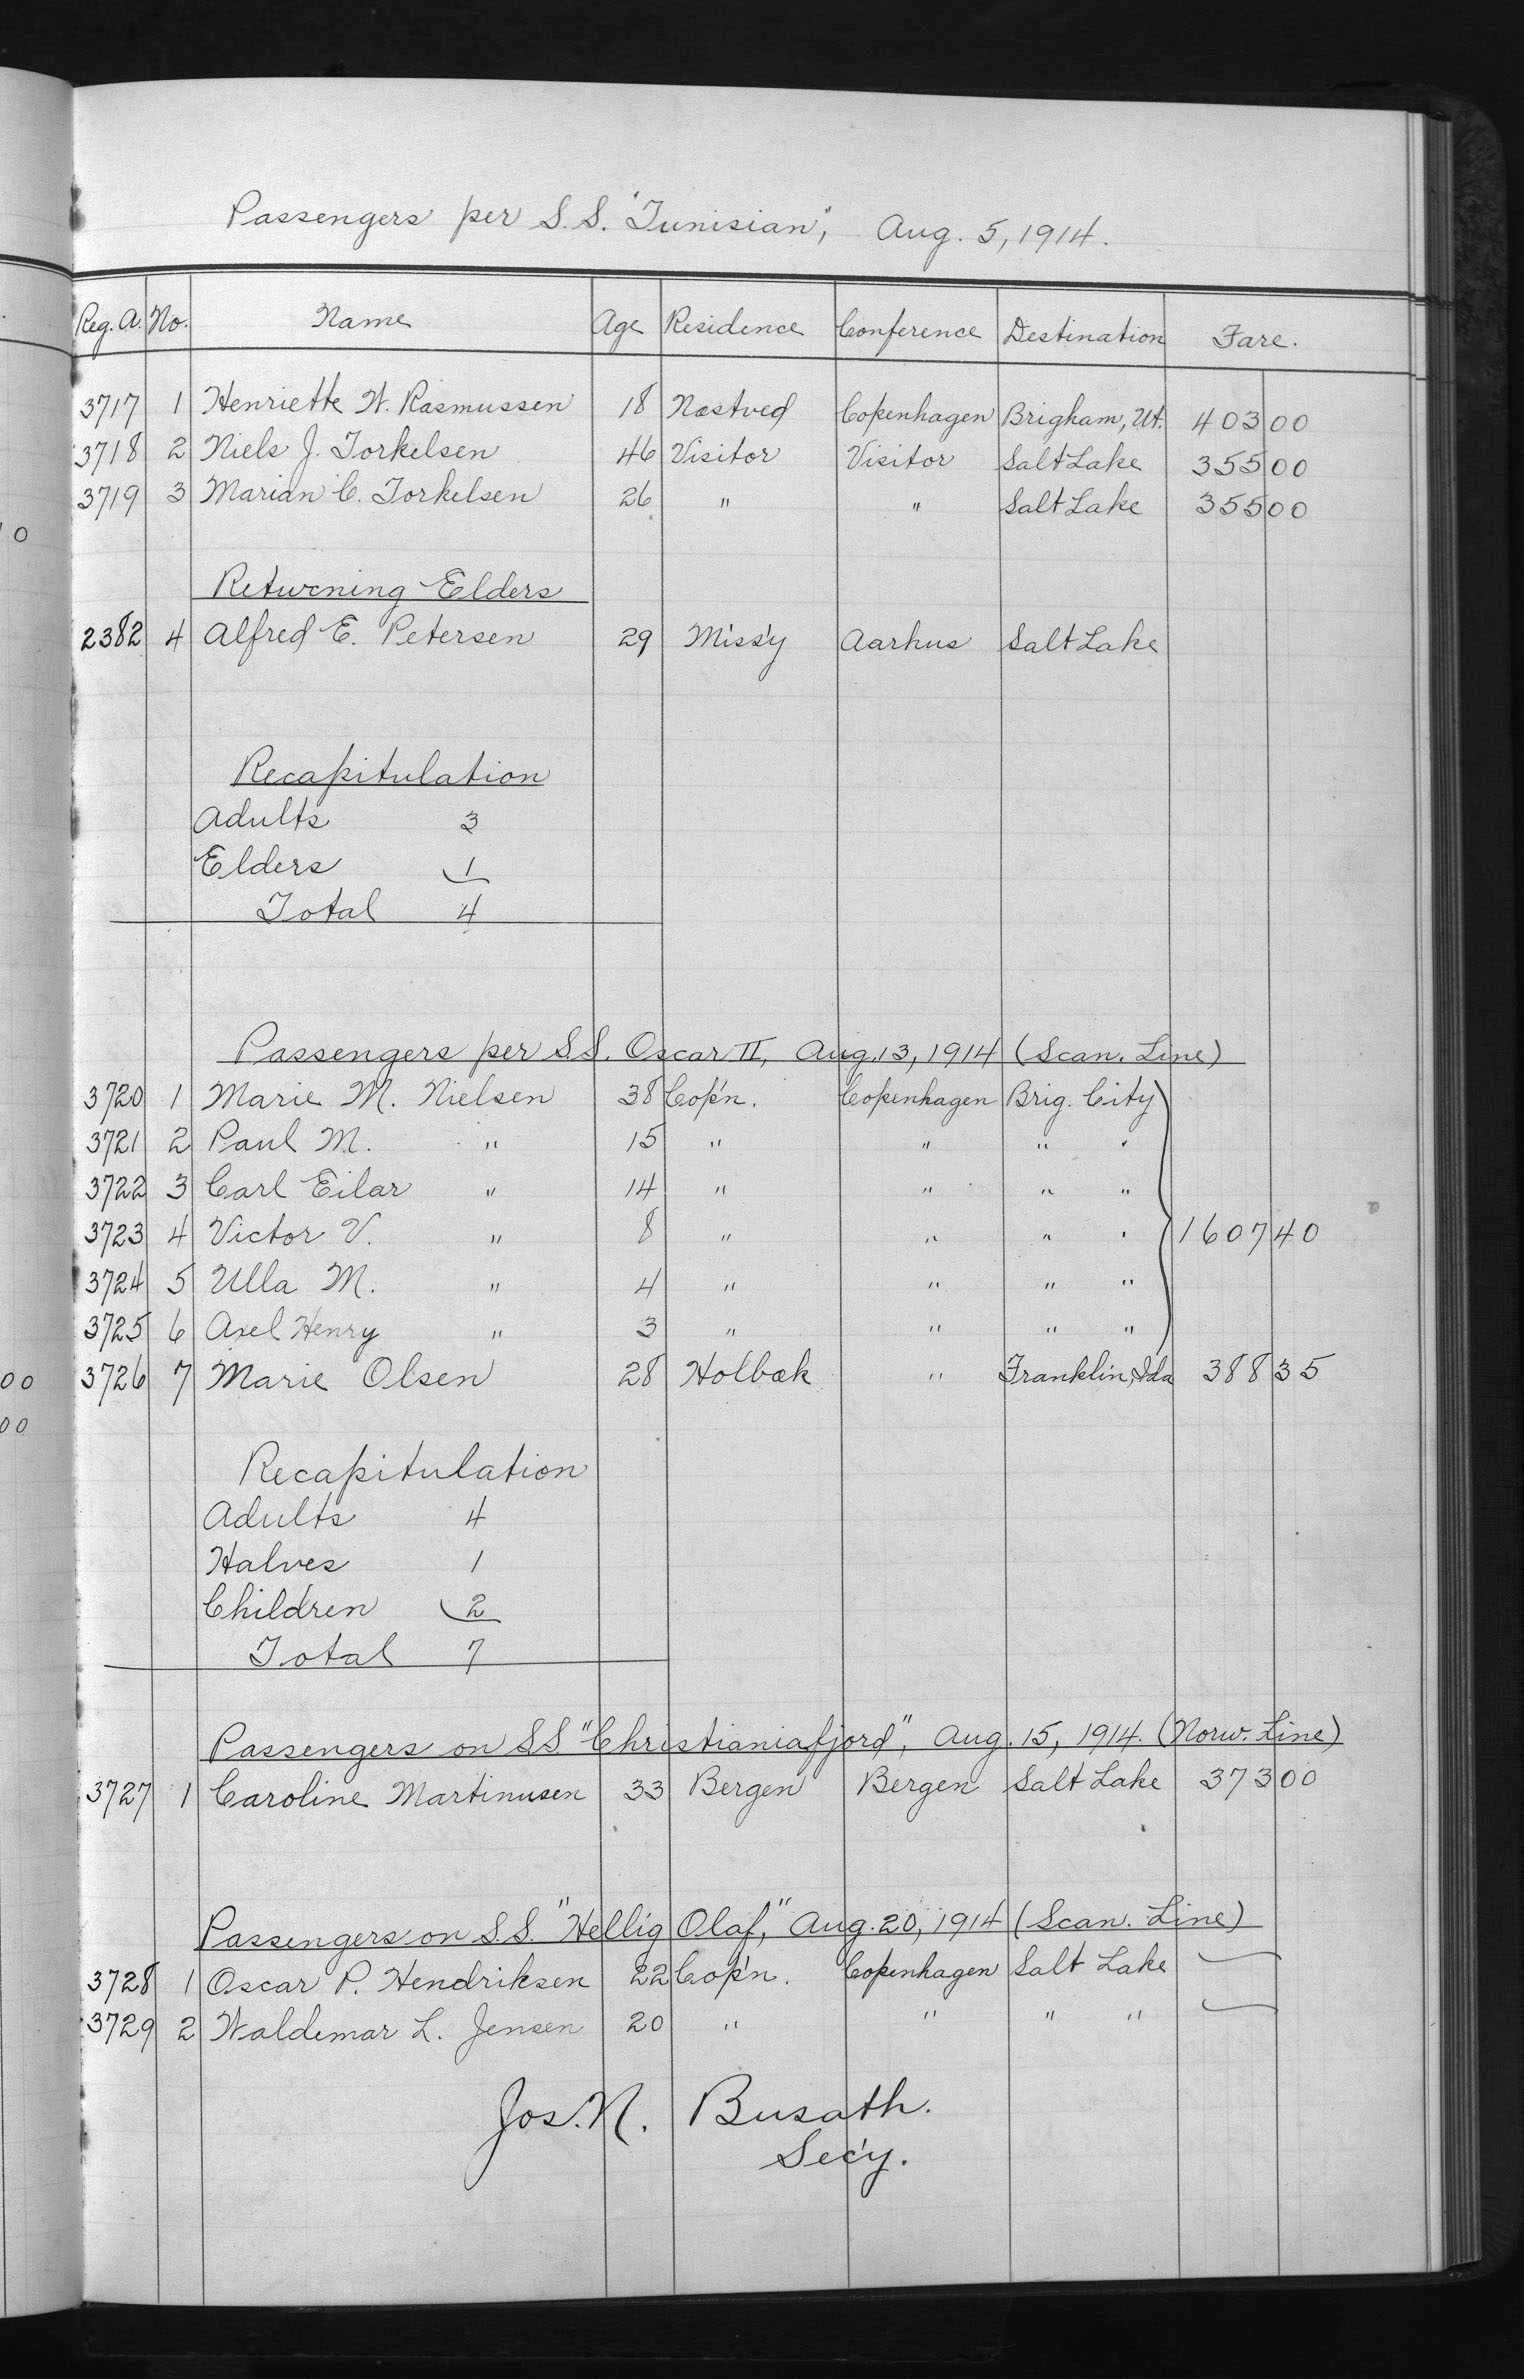 Passengers per S.S. "Tunisian", Aug. 5, 1914.
Reg. A. No. Name Age Residence Conference Destination Fare.
3717 1 Henriette W. Rasmussen 18 Næstved Copenhagen Brigham, Ut. 403 00
3718 2 Niels J. Torkelsen 46 Visitor Visitor Salt Lake 355 00
3719 3 Marian C. Torkelsen 26 " " Salt Lake 355 00
0
Returning Elders
2382 4 Alfred E. Petersen 29 Miss'y Aarhus Salt Lake
Recapitulation
Adults 3
Elders 1
Total 4
Passengers per S.S. Oscar II, Aug. 13, 1914 (Scan. Line)
3720 1 Marie M. Nielsen 38 Cop'n. Copenhagen Brig. City
3721 2 Paul M. " 15 " " " "
3722 3 Carl Eilar " 14 " " " "
3723 4 Victor V. " 8 " " " " 1607 40
3724 5 Ulla M. " 4 " " " "
3725 6 Axel Henry " 3 " " " "
00 3726 7 Marie Olsen 28 Holbæk " Franklin, Ida 388 35
00
Recapitulation
Adults 4
Halves 1
Children 2
Total 7
Passengers on S.S. "Christianiafjord", Aug. 15, 1914. (Norw. Line)
3727 1 Caroline Martinusen 33 Bergen Bergen Salt Lake 373 00
Passengers on S.S. "Hellig Olaf," Aug. 20, 1914 (Scan. Line)
3728 1 Oscar P. Hendriksen 22 Cop'n. Copenhagen Salt Lake —
3729 2 Waldemar L. Jensen 20 " " " " —
Jos. N. Busath.
Sec'y.